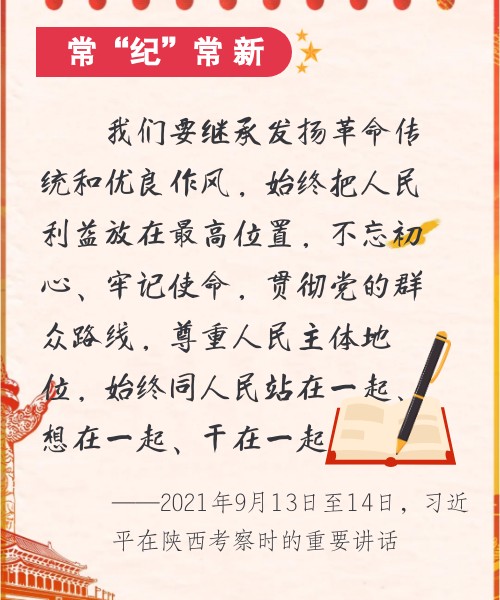 常“纪”常新
我们要继承发扬革命传
统和优良作风，始终把人民
利益放在最高位置，不忘初
心、牢记使命，贯彻党的群
众路线，尊重人民主体地
位，始终同人民站在一起、
想在一起、干在一起
——2021年9月13日至14日，习近
平在陕西考察时的重要讲话